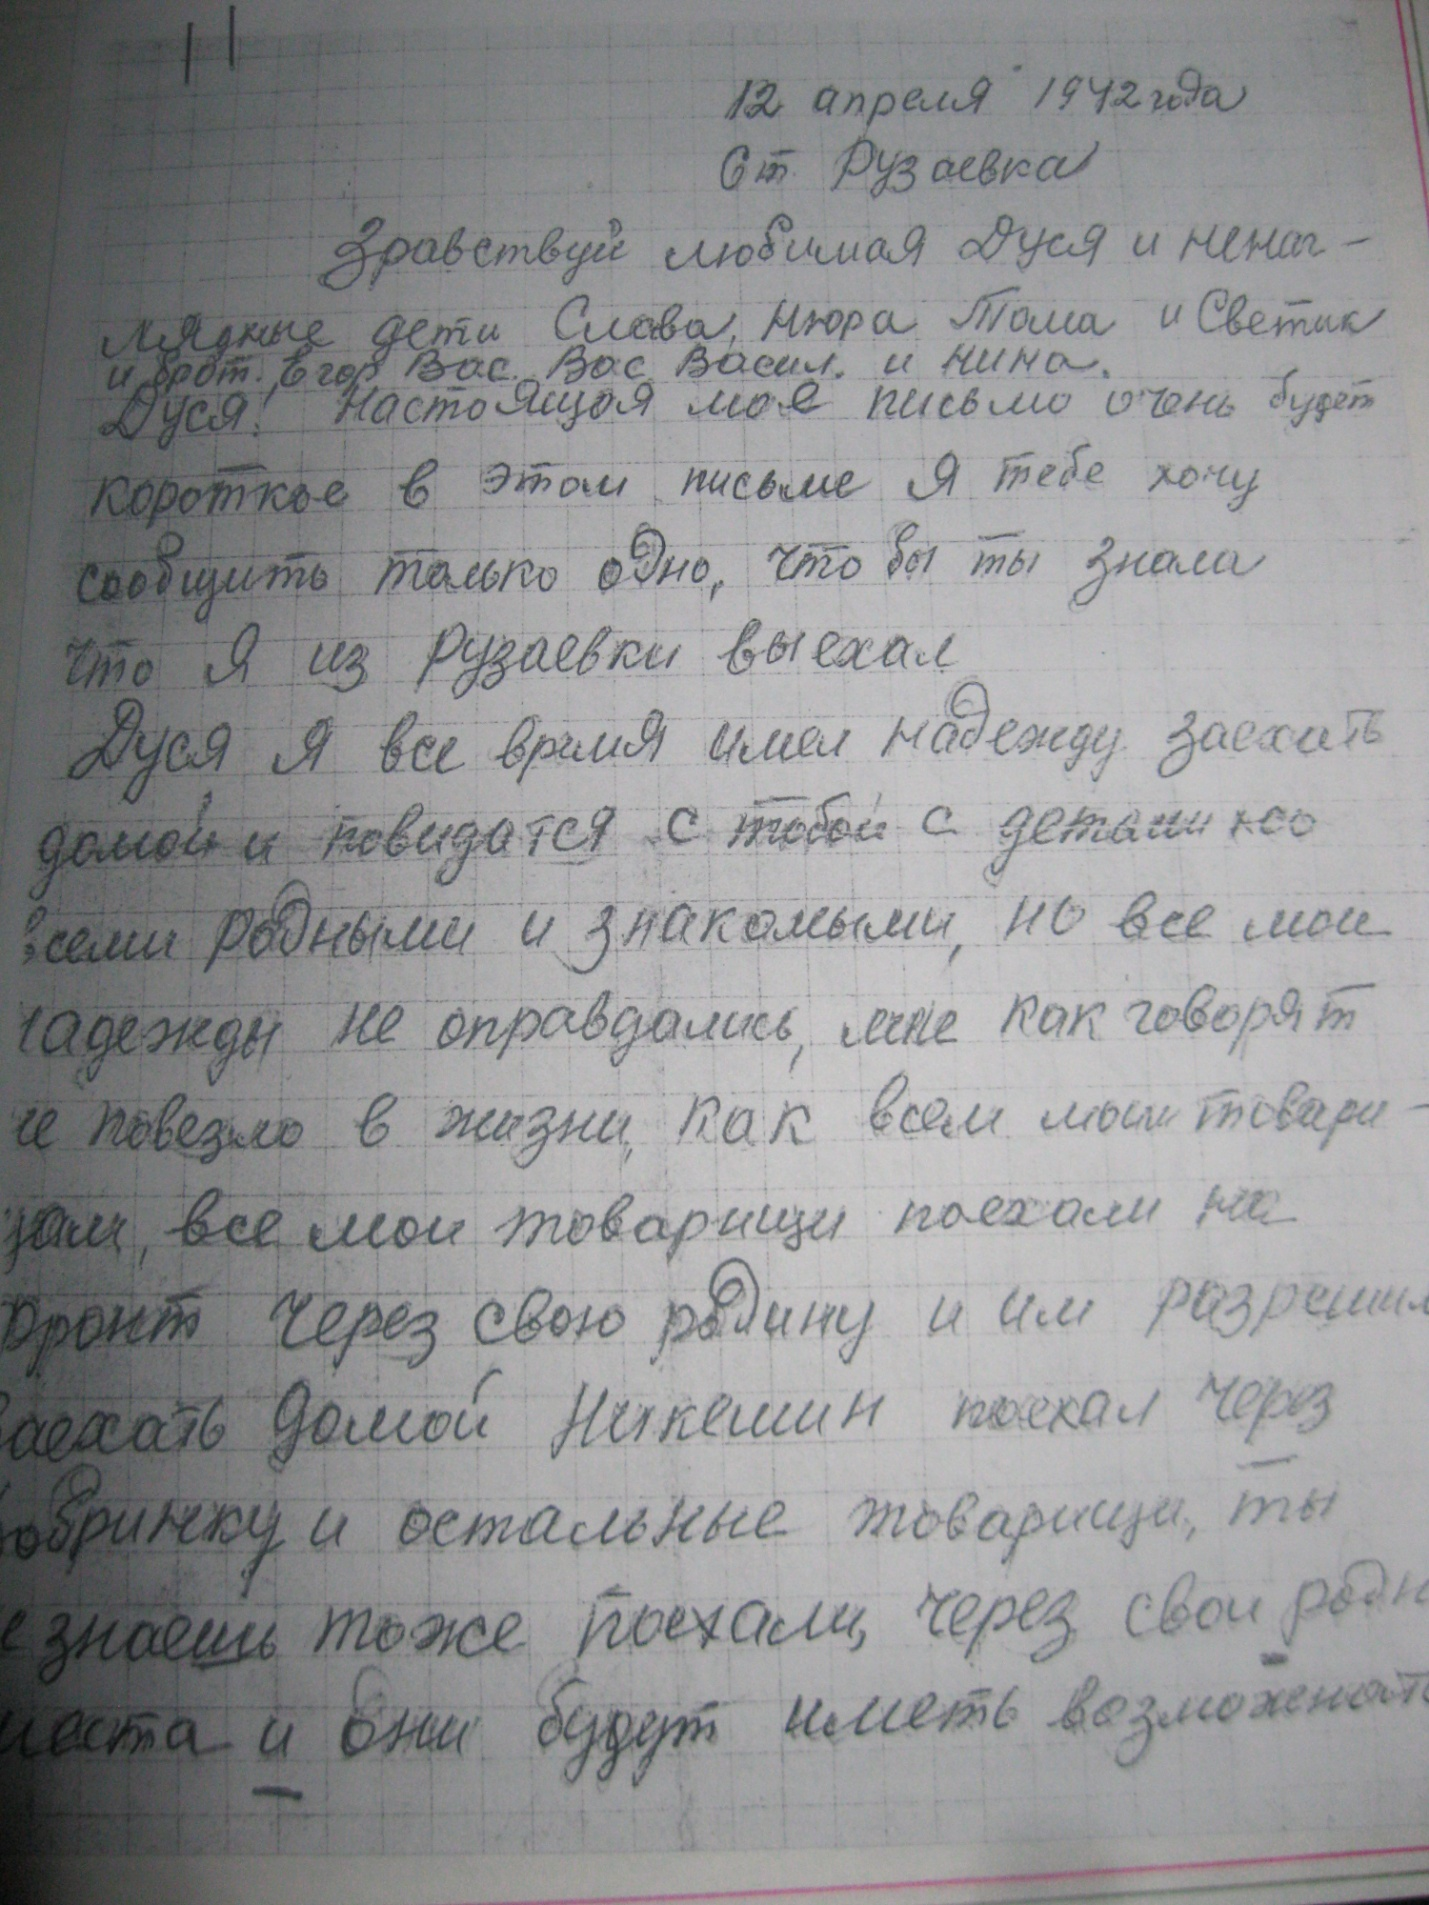 12 апреля 1942 года
Ст. Рузаевка
Здравствуй любимая Дуся и ненаг-
лядные дети Слава, Нюра Тома и Светик
и брат. Егор Вас. Вас. Васил. и Нина.
Дуся! Настоящая мое письмо очень будет
короткое в этом письме я тебе хочу
сообщить только одно, что бы ты знала
что я из Рузаевки выехал
Дуся я все время имел надежду заехать
домой и повидатся с тобой с детами со
всеми родными и знакомыми, но все мои
надежды не оправдались, мне как говорят
не повезло в жизни, как всем моим товари-
щам, все мои товарищи поехали на
фронт через свою родину и им разрешил
заехать домой Никешин поехал через
Добринку и остальные товарищи, ты
не знаешь тоже поехали, через свои родн
места и они будут иметь возможность